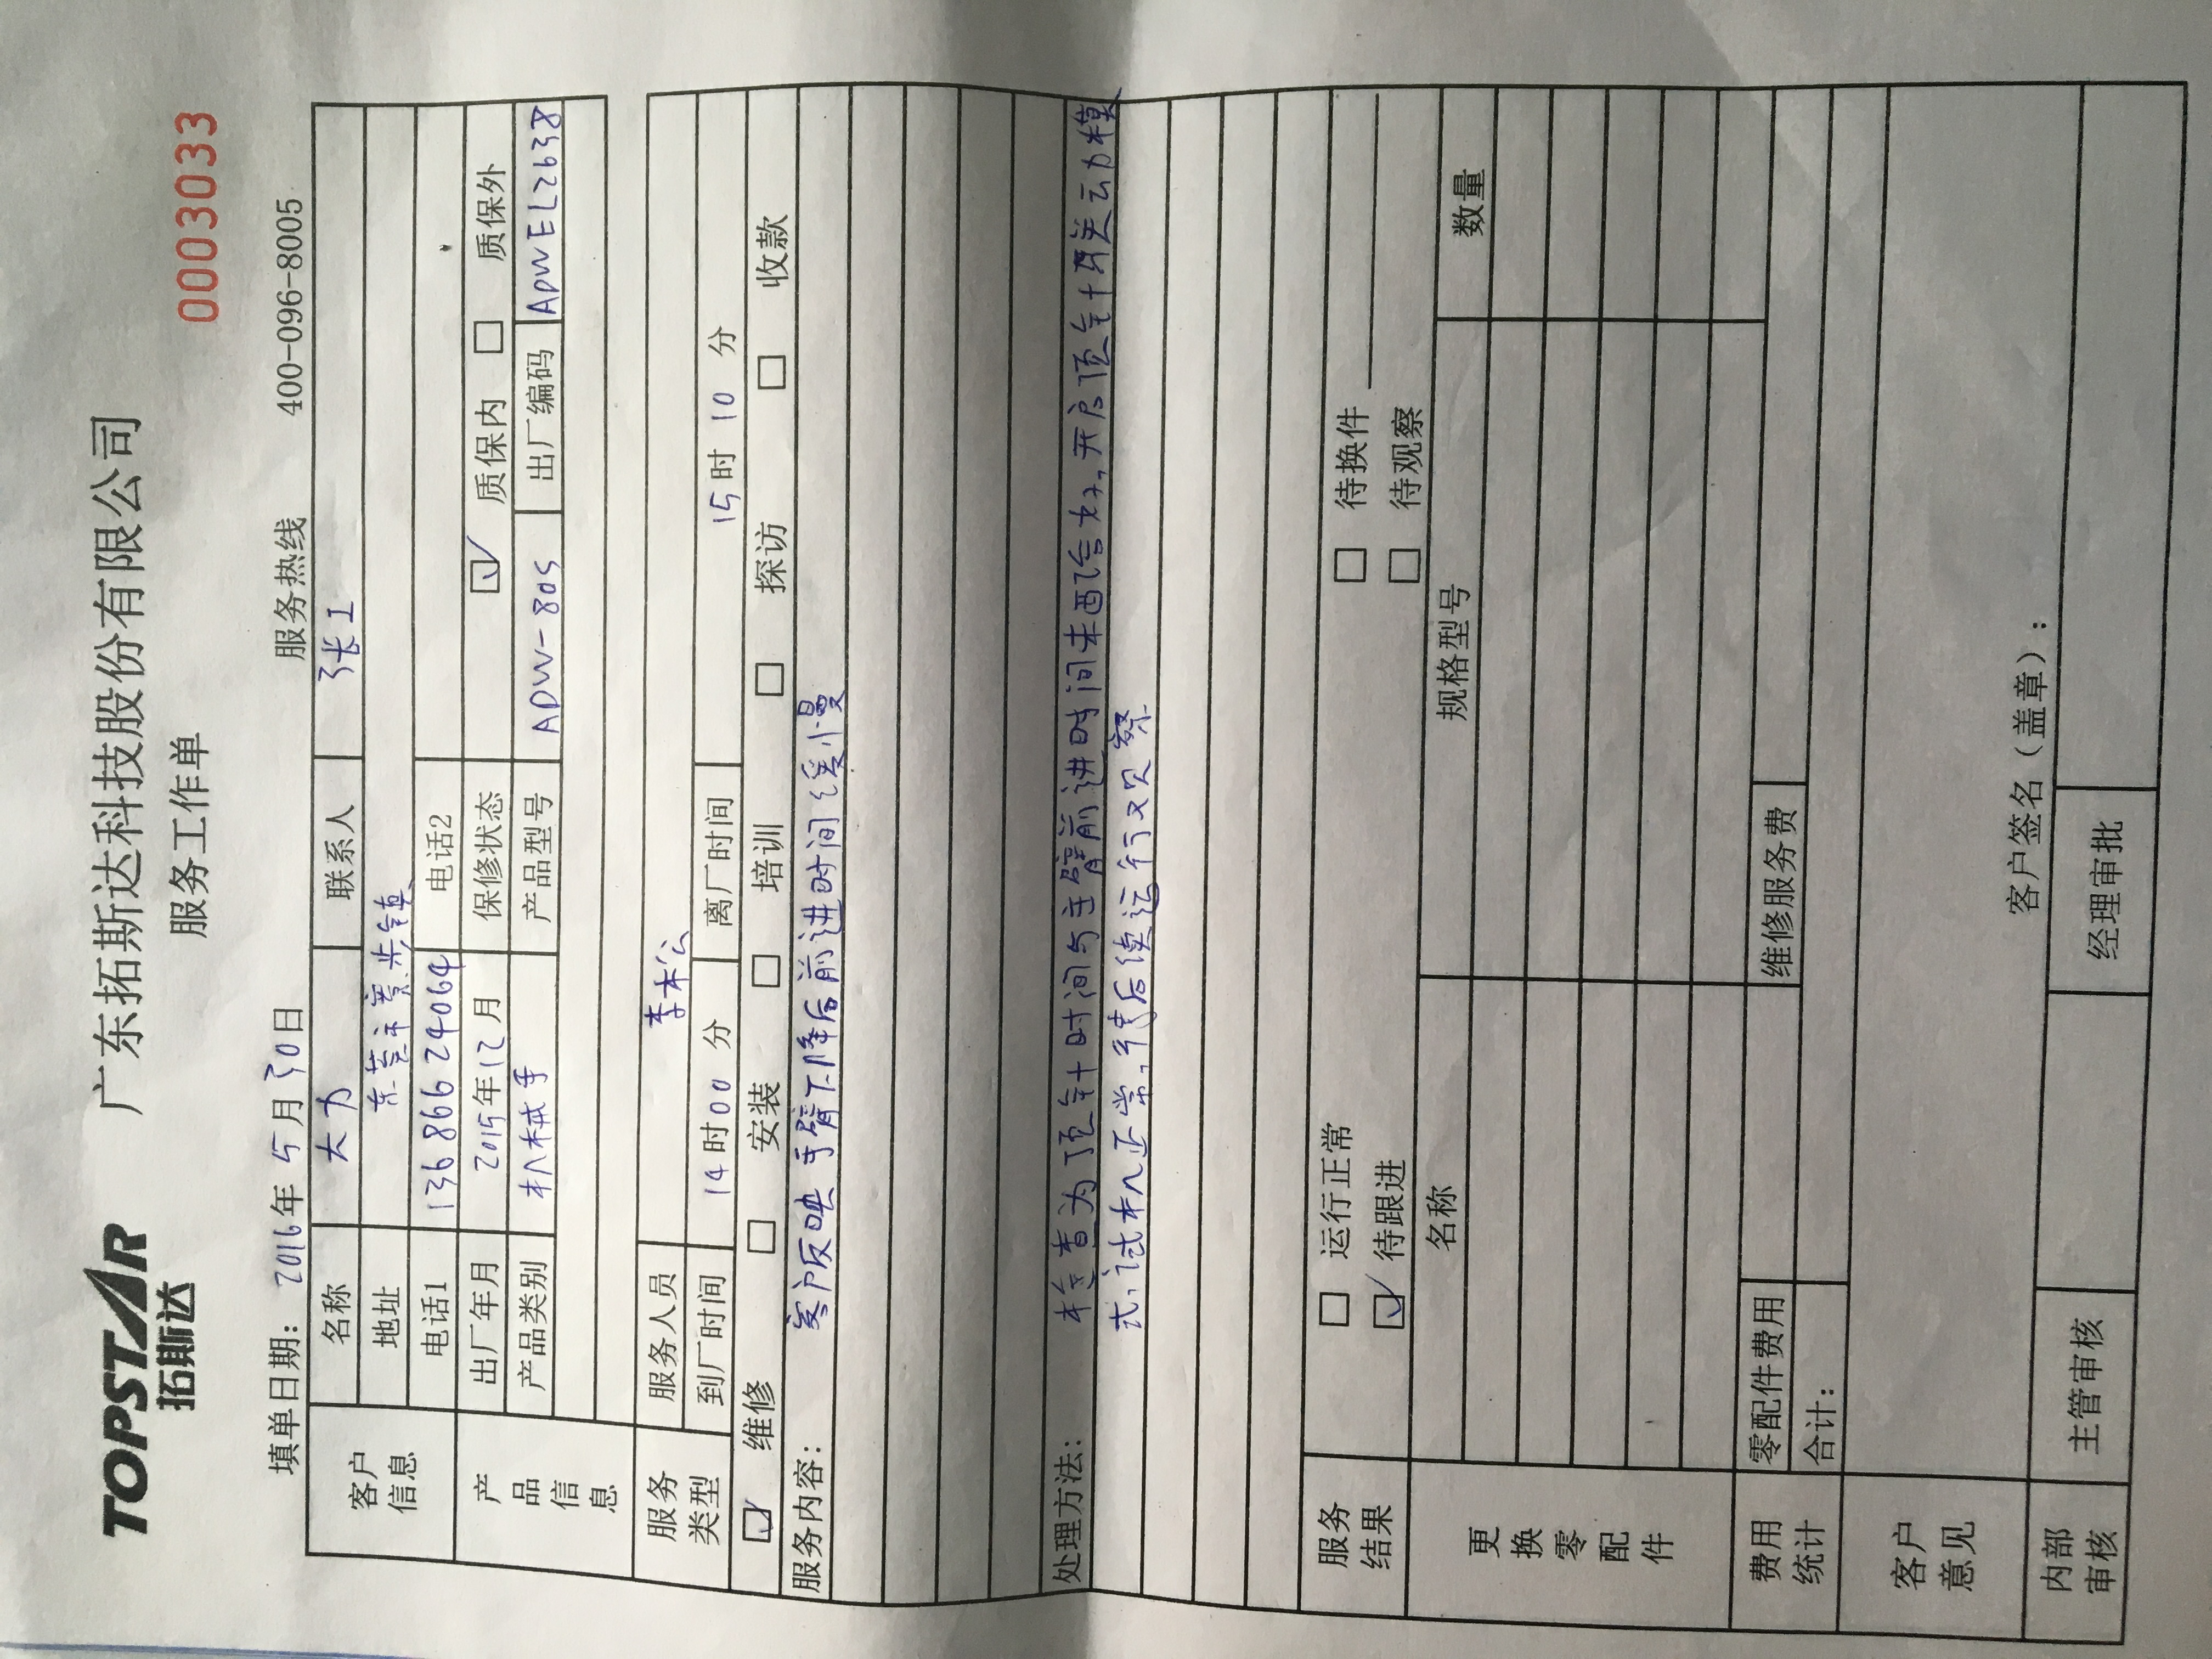 TOPSTAR
拓斯达
广东拓斯达科技股份有限公司
服务工作单
0003033
填单日期: 2016年5月30日 服务热线 400-096-8005
客户信息 名称 大力 联系人 张工
地址 东莞市寮步镇
电话1 13686624064 电话2
产品信息 出厂年月 2015年12月 保修状态 ☑ 质保内 □ 质保外
产品类别 机械手 产品型号 ADW-80S 出厂编码 ADWEL2638
服务类型 服务人员 李
到厂时间 14时00分 离厂时间 15时10分
☑ 维修 □ 安装 □ 培训 □ 探访 □ 收款
服务内容: 客户反映手臂下降后前进时间缓慢
处理方法: 检查为顶针时间与主臂前进时间未配合好,开启顶针联动模
式,试机正常,待后续运行观察
服务结果 □ 运行正常 □ 待换件
☑ 待跟进 □ 待观察
更换零配件 名称 规格型号 数量
费用统计 零配件费用 维修服务费
合计:
客户意见
客户签名(盖章):
内部审核 主管审核 经理审批